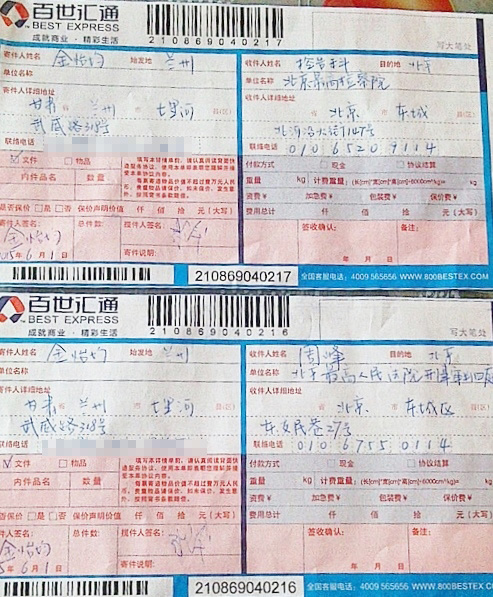 百世汇通
BEST EXPRESS
成就商业·精彩生活
210869040217
写大笔处
寄件人姓名 金怡灼 始发地 兰州
收件人姓名 控告科 目的地 北京
单位名称
单位名称 北京最高检察院
寄件人详细地址
收件人详细地址
甘肃 省 兰州 市 七里河
武威路318号
省 北京 市 东城 县(区)
北河沿大街147号
联络电话
联络电话 010 6520 9114
文件 物品
内件品名 数量
付款方式 现金 协议结算
重量 kg 计费重量:(长[cm]*宽[cm]*高[cm]÷6000cm³/kg)= kg
资费¥ 加急费¥ 包装费¥ 保价费¥
是否保价 是 否 保价声明价值 仟 佰 拾 元(大写)
费用总计 仟 佰 拾 元(大写)
寄件人签名: 总件数: 揽件人签名:
金怡灼
年6月1日
寄件说明:
签收确认: 备注:
年 月 日
210869040217
全国客服电话:4009 565656 WWW.800BESTEX.COM
百世汇通
BEST EXPRESS
成就商业·精彩生活
210869040216
写大笔处
寄件人姓名 金怡灼 始发地 兰州
收件人姓名 周峰 目的地 北京
单位名称
单位名称 北京最高人民法院刑事审判四庭
寄件人详细地址
收件人详细地址
甘肃 省 兰州 市 七里河 县(区)
武威路318号
省 北京 市 东城区
东交民巷27号
联络电话
联络电话 010 6755 0114
文件 物品
内件品名 数量
付款方式 现金 协议结算
重量 kg 计费重量:(长[cm]*宽[cm]*高[cm]÷6000cm³/kg)= kg
资费¥ 加急费¥ 包装费¥ 保价费¥
是否保价 是 否 保价声明价值 仟 佰 拾 元(大写)
费用总计 仟 佰 拾 元(大写)
寄件人签名: 总件数: 揽件人签名:
金怡灼
年6月1日
寄件说明:
签收确认: 备注:
年 月 日
210869040216
全国客服电话:4009 565656 WWW.800BESTEX.COM